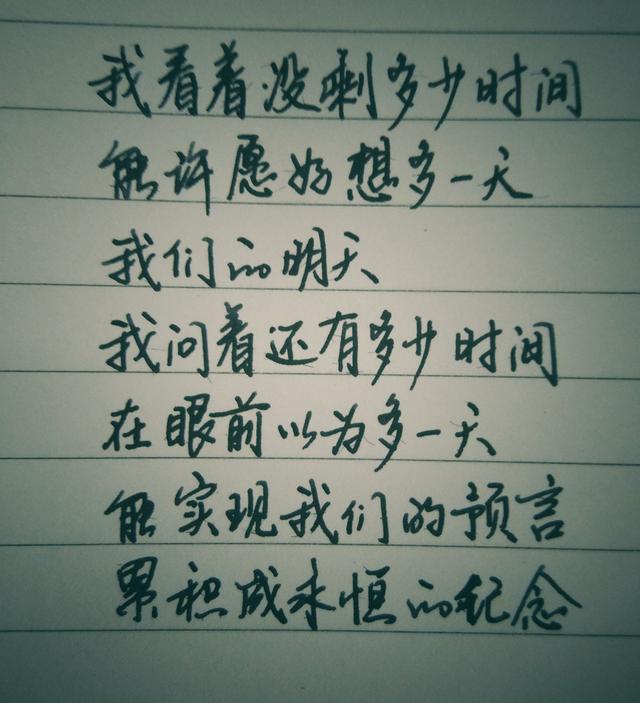 我看着没剩多少时间
能许愿好想多一天
我们的明天
我问着还有多少时间
在眼前以为多一天
能实现我们的预言
累积成永恒的纪念